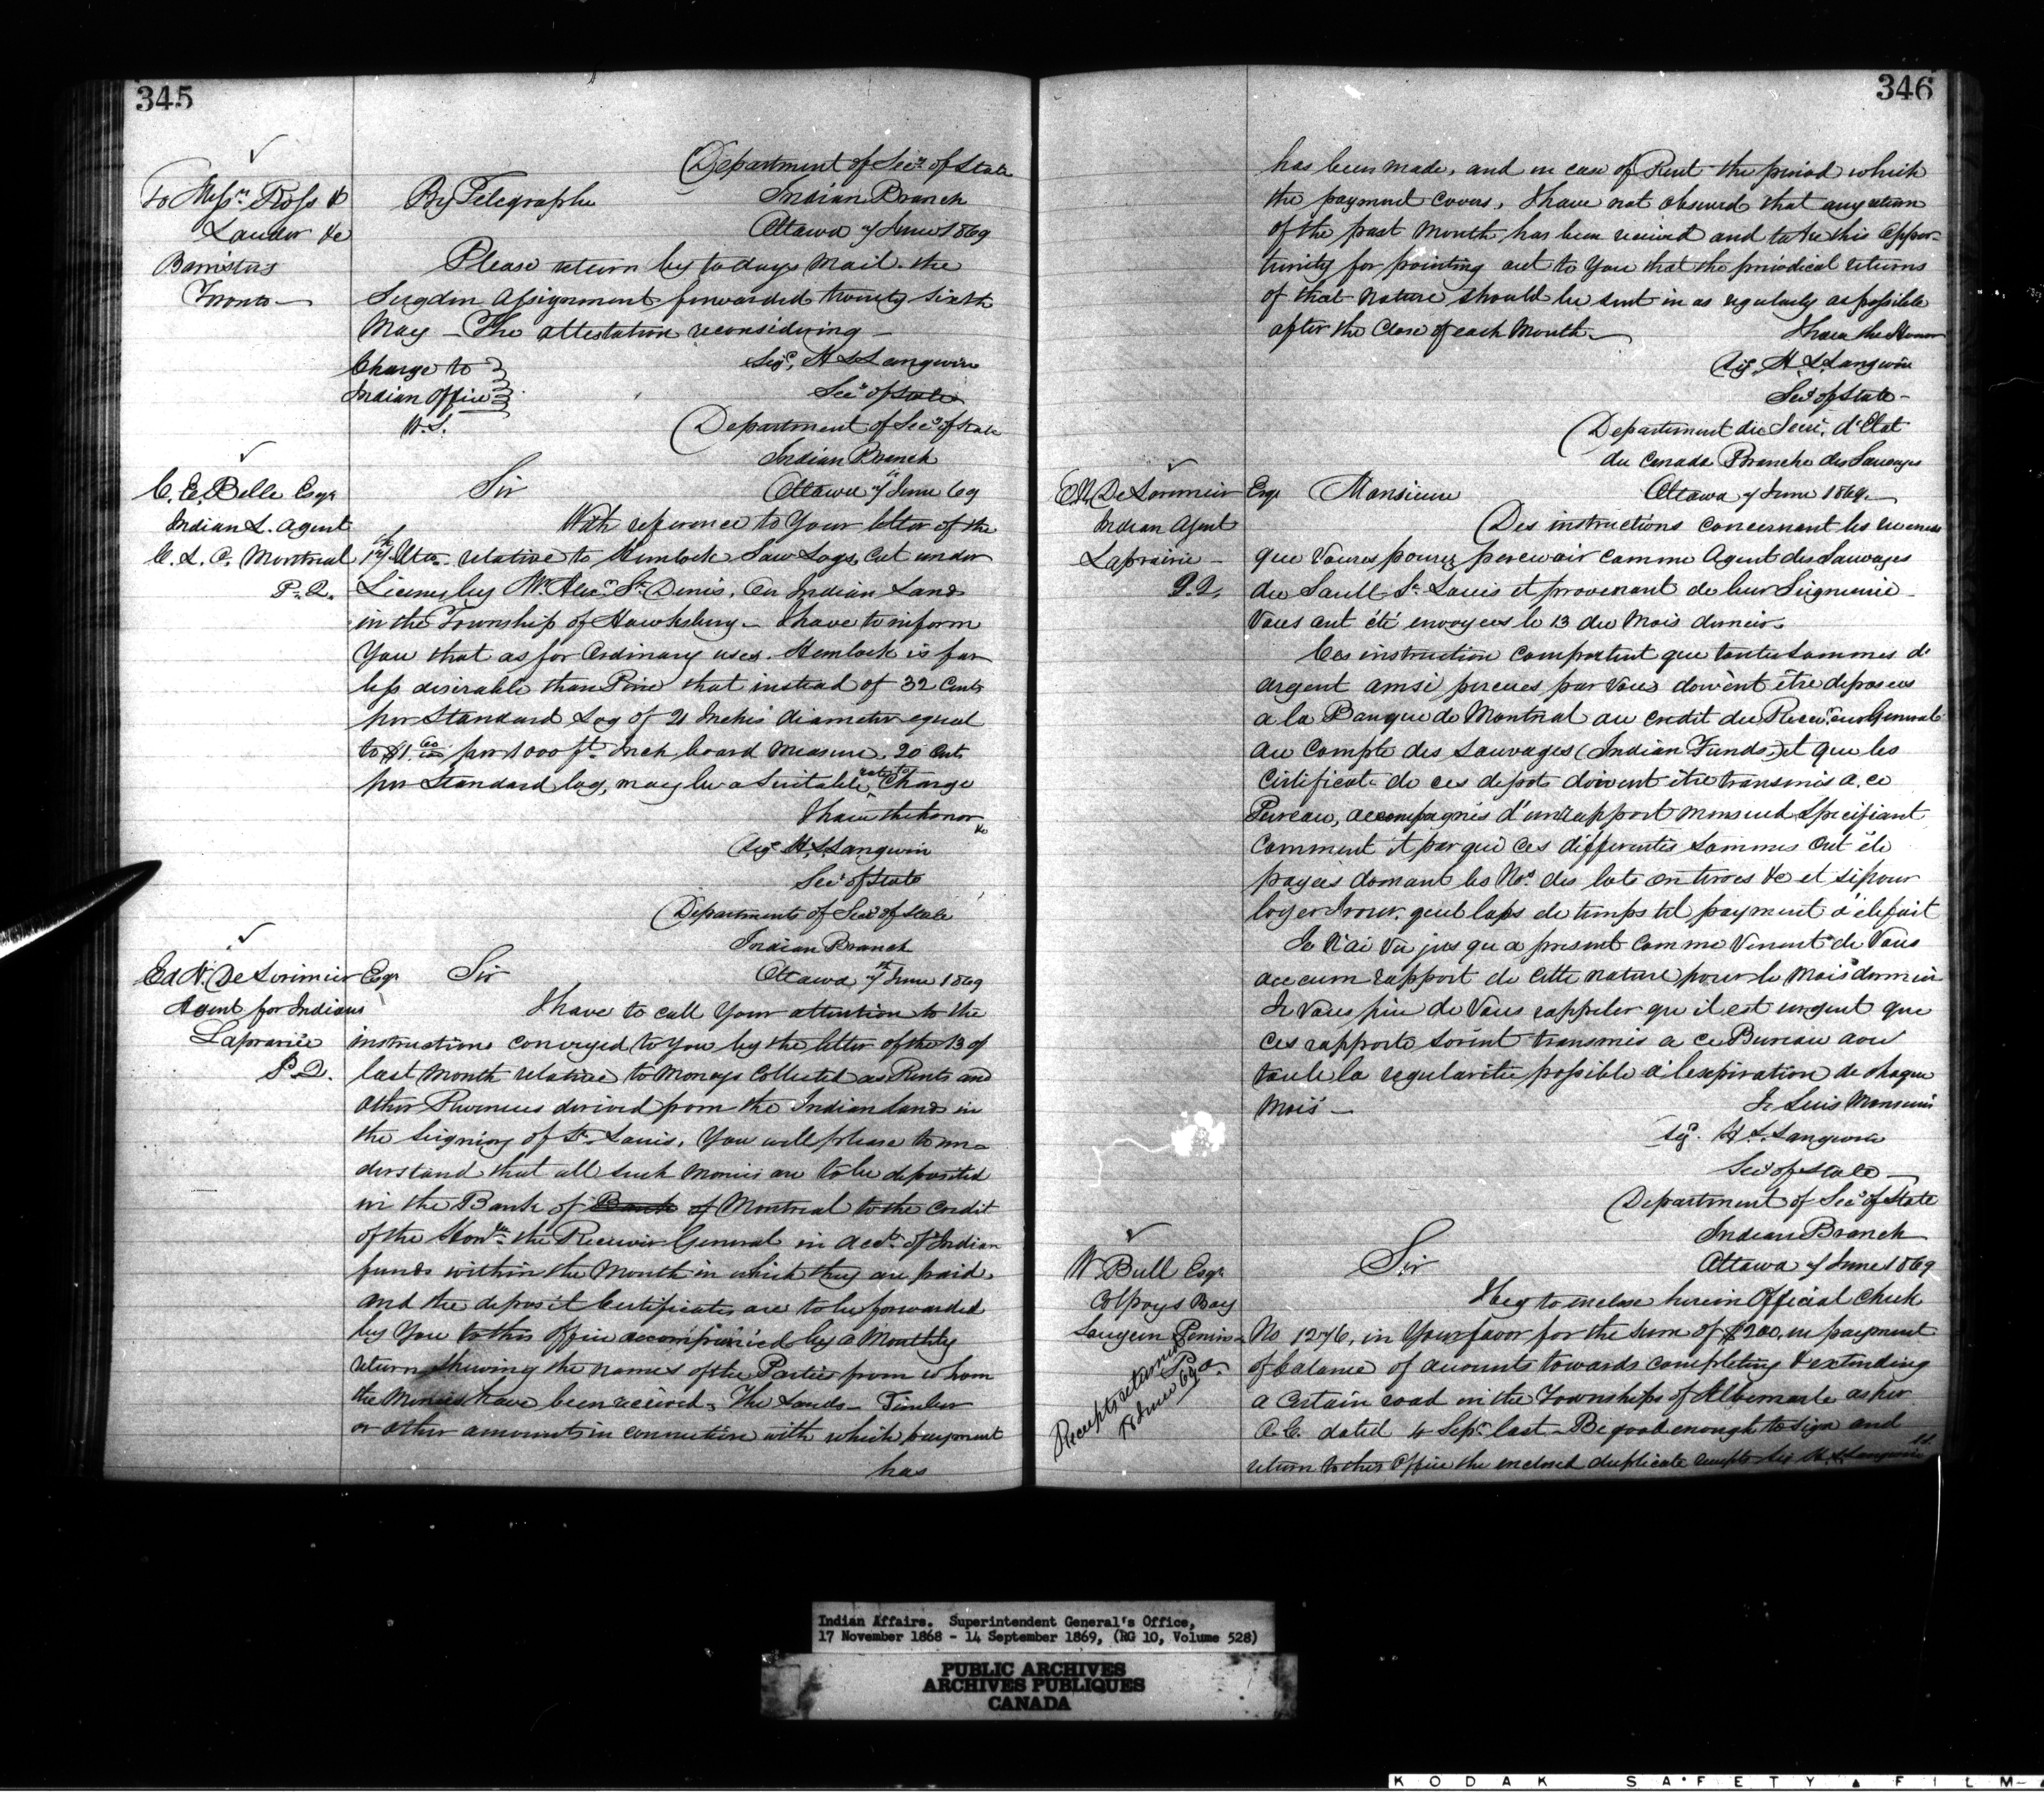 345
Department of Secy of State
To Messrs Ross &
By Telegraphe
Indian Branch
Lauder &c
Ottawa 7 June 1869
Barristers
Toronto —
Please return by todays mail the
Sugden Assignment forwarded twenty sixth
May — The attestation reconsidering —
Charge to
Indian Office
W.S.
Sigd, H L Langevin
Secy of State
Department of Secy of State
Indian Branch
C. E. Belle Esqr
Sir
Ottawa 7th June 69
Indian L. Agent
C. L. A. Montreal
P. Q.
With reference to Your letter of the
17th Ulto relative to Hemlock Saw Logs, cut under
License by Mr Alexr St Denis, on Indian Lands
in the Township of Hawksbury — I have to inform
You that as for Ordinary uses. Hemlock is far
less desirable than Pine that instead of 32 Cents
per Standard Log of 21 Inches diameter equal
to $1.60 per 1000 ft Inch board Measure. 20 Cents
per Standard log, may be a Suitable rate to Charge
I have the honor
&c
Sigd H. L. Langevin
Secy of State
Department of Secy of State
Indian Branch
Ed N. De Lorimier Esqr
Sir
Ottawa 7th June 1869
Agent for Indians
Laprairie
P. Q.
I have to call Your attention to the
instructions conveyed to You by the letter of the 13 of
last Month relative to Moneys Collected as Rents and
other Revenues derived from the Indian Lands in
the Seigniory of St Louis. You will please to un-
derstand that all such Monies are to be deposited
in the Bank of Bank of Montreal to the Credit
of the Honble the Receiver General in acct of Indian
funds within the Month in which they are paid.
and the deposit Certificates are to be forwarded
by You to this Office accompanied by a Monthly
return shewing the names of the Parties from whom
the Monies have been received. The Lands — Timber
or other amounts in connection with which payment
has
346
has been made, and in case of Rent the period which
the payment covers, I have not observed that any return
of the past Month has been received and take this oppor-
tunity for pointing out to You that the periodical returns
of that nature should be sent in as regularly as possible
after the Close of each Month. —
I have the Honor
Sigd. H. L. Langevin
Secy of State —
Departement du Secre. d'Etat
du Canada Branche des Sauvages
E N De Lorimier Esqr
Monsieur
Ottawa 7 June 1869. —
Indian Agent
Laprairie —
P. Q.
Des instructions concernant les revenus
que Vous pourez percevoir comme Agent des Sauvages
du Sault St Louis et provenant de leur Seigneurie —
Vous ont été envoyees le 13 du Mois dernier.
Ces instruction comportent que toutes Sommes d'
argent ainsi percues par Vous doivent être deposees
a la Banque de Montreal au credit du Receveur General
au Compte des Sauvages (Indian Funds) et que les
Certificats de ces depots doivent être transmis a ce
Bureau, accompagnés d'un rapport mensuel Specifiant
Comment et par qui ces differentes Sommes ont été
payées donnant les Nos des lots
&c et si pour
quel laps de temps tel payment a été fait
Je n'ai Vu jusqu a present comme Venant de Vous
aucun rapport de cette nature pour le Mois dernier
Je Vous prie de Vous rappeler qu il est urgent que
ces rapports soient transmis a ce Bureau avec
toute la regularitée possible a l'expiration de chaque
Mois —
Je Suis Monsieur
Sigd. H. L. Langevin
Secy of State —
Department of Secy of State
Indian Branch
W. Bull Esqr
Sir
Ottawa 7 June 1869
Colpoys Bay
Saugeen Penin-
P. O.
Receipts returned
18 June 69
I beg to enclose herein Official Check
No 1276, in Your favor for the Sum of $200, in payment
of balance of accounts towards completing & extending
a certain road in the Townships of Albemarle as per
O. C. dated 4 Sepr last — Be good enough to sign and
return to this Office the enclosed duplicate receipts Sig H. L. Langevin
Indian Affairs. Superintendent General's Office,
17 November 1868 - 14 September 1869, (RG 10, Volume 528)
PUBLIC ARCHIVES
ARCHIVES PUBLIQUES
CANADA
KODAK SAFETY FILM